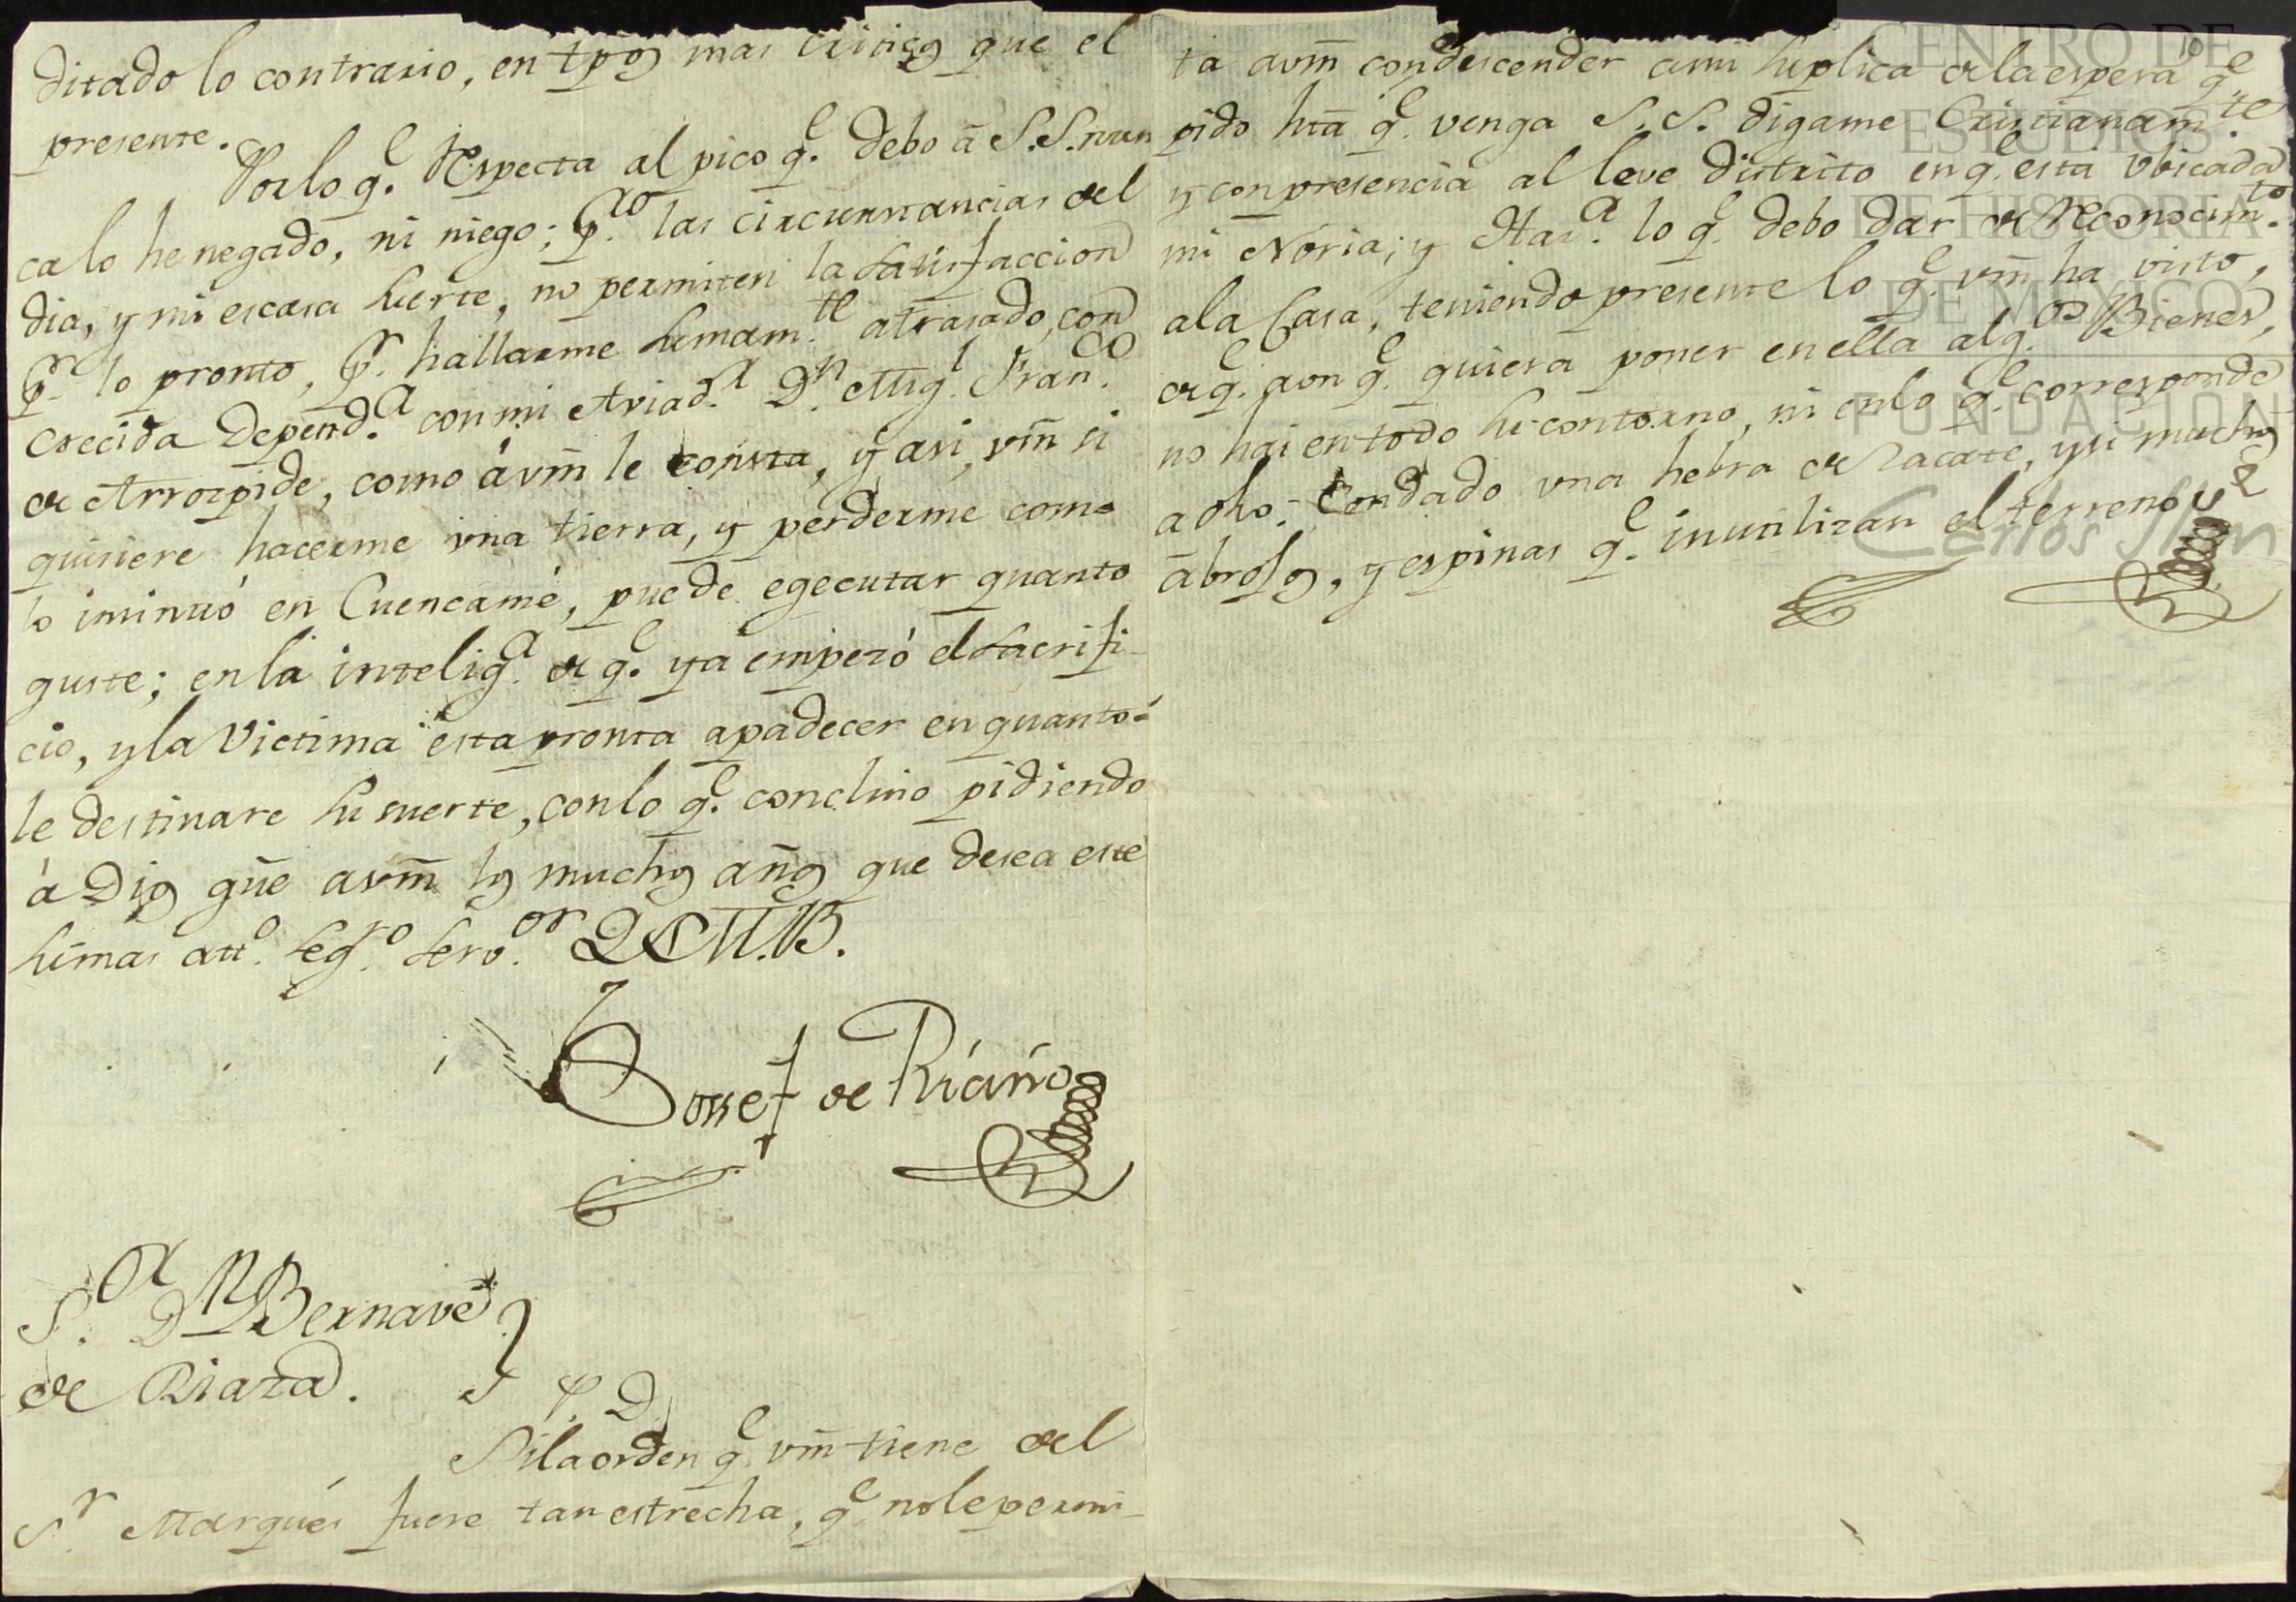 ditado lo contrario, en tpos mas criticos que el
presente.
Por lo q.e respecta al pico q.e debo â S.S. nun
ca lo he negado, ni niego; p.ro las circunstancias del
dia, y mi escasa suerte, no permiten la satisfaccion
p.r lo pronto, p.r hallarme sumam.te atrasado, con
crecida Depend.a con mi Aviad.r D.n Mig.l Fran.co
de Arrozpide, como á vm̃ le consta, y asi, vm̃ si
quisiere hacerme una tierra, y perderme como
lo iminuó en Cuencamé, puede egecutar quanto
guste; en la intelig.a de q.e ya empezó el sacrifi-
cio, y la Victima esta pronta apadecer en quanto
le destinare su suerte, con lo q.e concluio pidiendo
á Dios gũe avm̃ los muchos añs que desea este
su mas att.o seg.ro serv.or Q.S.M.B.
Jossef de Riaño
S.or D.n Bernavé
de Riaza.
P. D.
Si la orden q.e vm̃ tiene del
S.r Marqués fuere tan estrecha, q.e nole permi-
10
ta avm̃ condescender ami suplica de la espera q.e
pido hta q.e venga S.S. digame Cristianam.te
y con presencia al leve distrito en q.e esta Vbicada
mi Noria; y Has.a lo q.e debo dar de Reconocim.to
ala Casa, teniendo presente lo q.e vm̃ ha visto,
de q.e aon q.e quiera poner en ella alg.os Bienes,
no hai en todo su contorno, ni enlo q.e corresponde
a dho. Condado vna hebra de Zacate, y si muchos
âbrojos, y espinas q.e inutilizan el terreno
CENTRO DE
ESTUDIOS
DE HISTORIA
DE MÉXICO
FUNDACIÓN
Carlos Slim